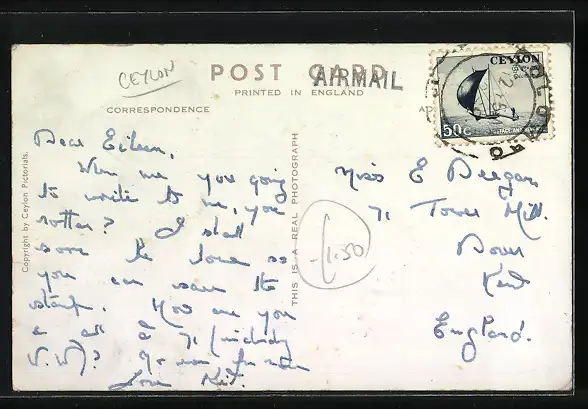 CEYLON
POST CARD
AIRMAIL
PRINTED IN ENGLAND
CORRESPONDENCE
AD
CEYLON
50c
POSTAGE AND REVENUE
COLOMBO
Copyright by Ceylon Pictorials.
THIS IS A REAL PHOTOGRAPH
Dear Eileen,
When are you going
to write to me, you
rotter? I shall
save the love so
you can save the
stamp. How are you
all at 71 (including
V.W.)?
Love Kit.
£1.50
Miss E Deegan
71 Tower Hill.
Dover
Kent
England.